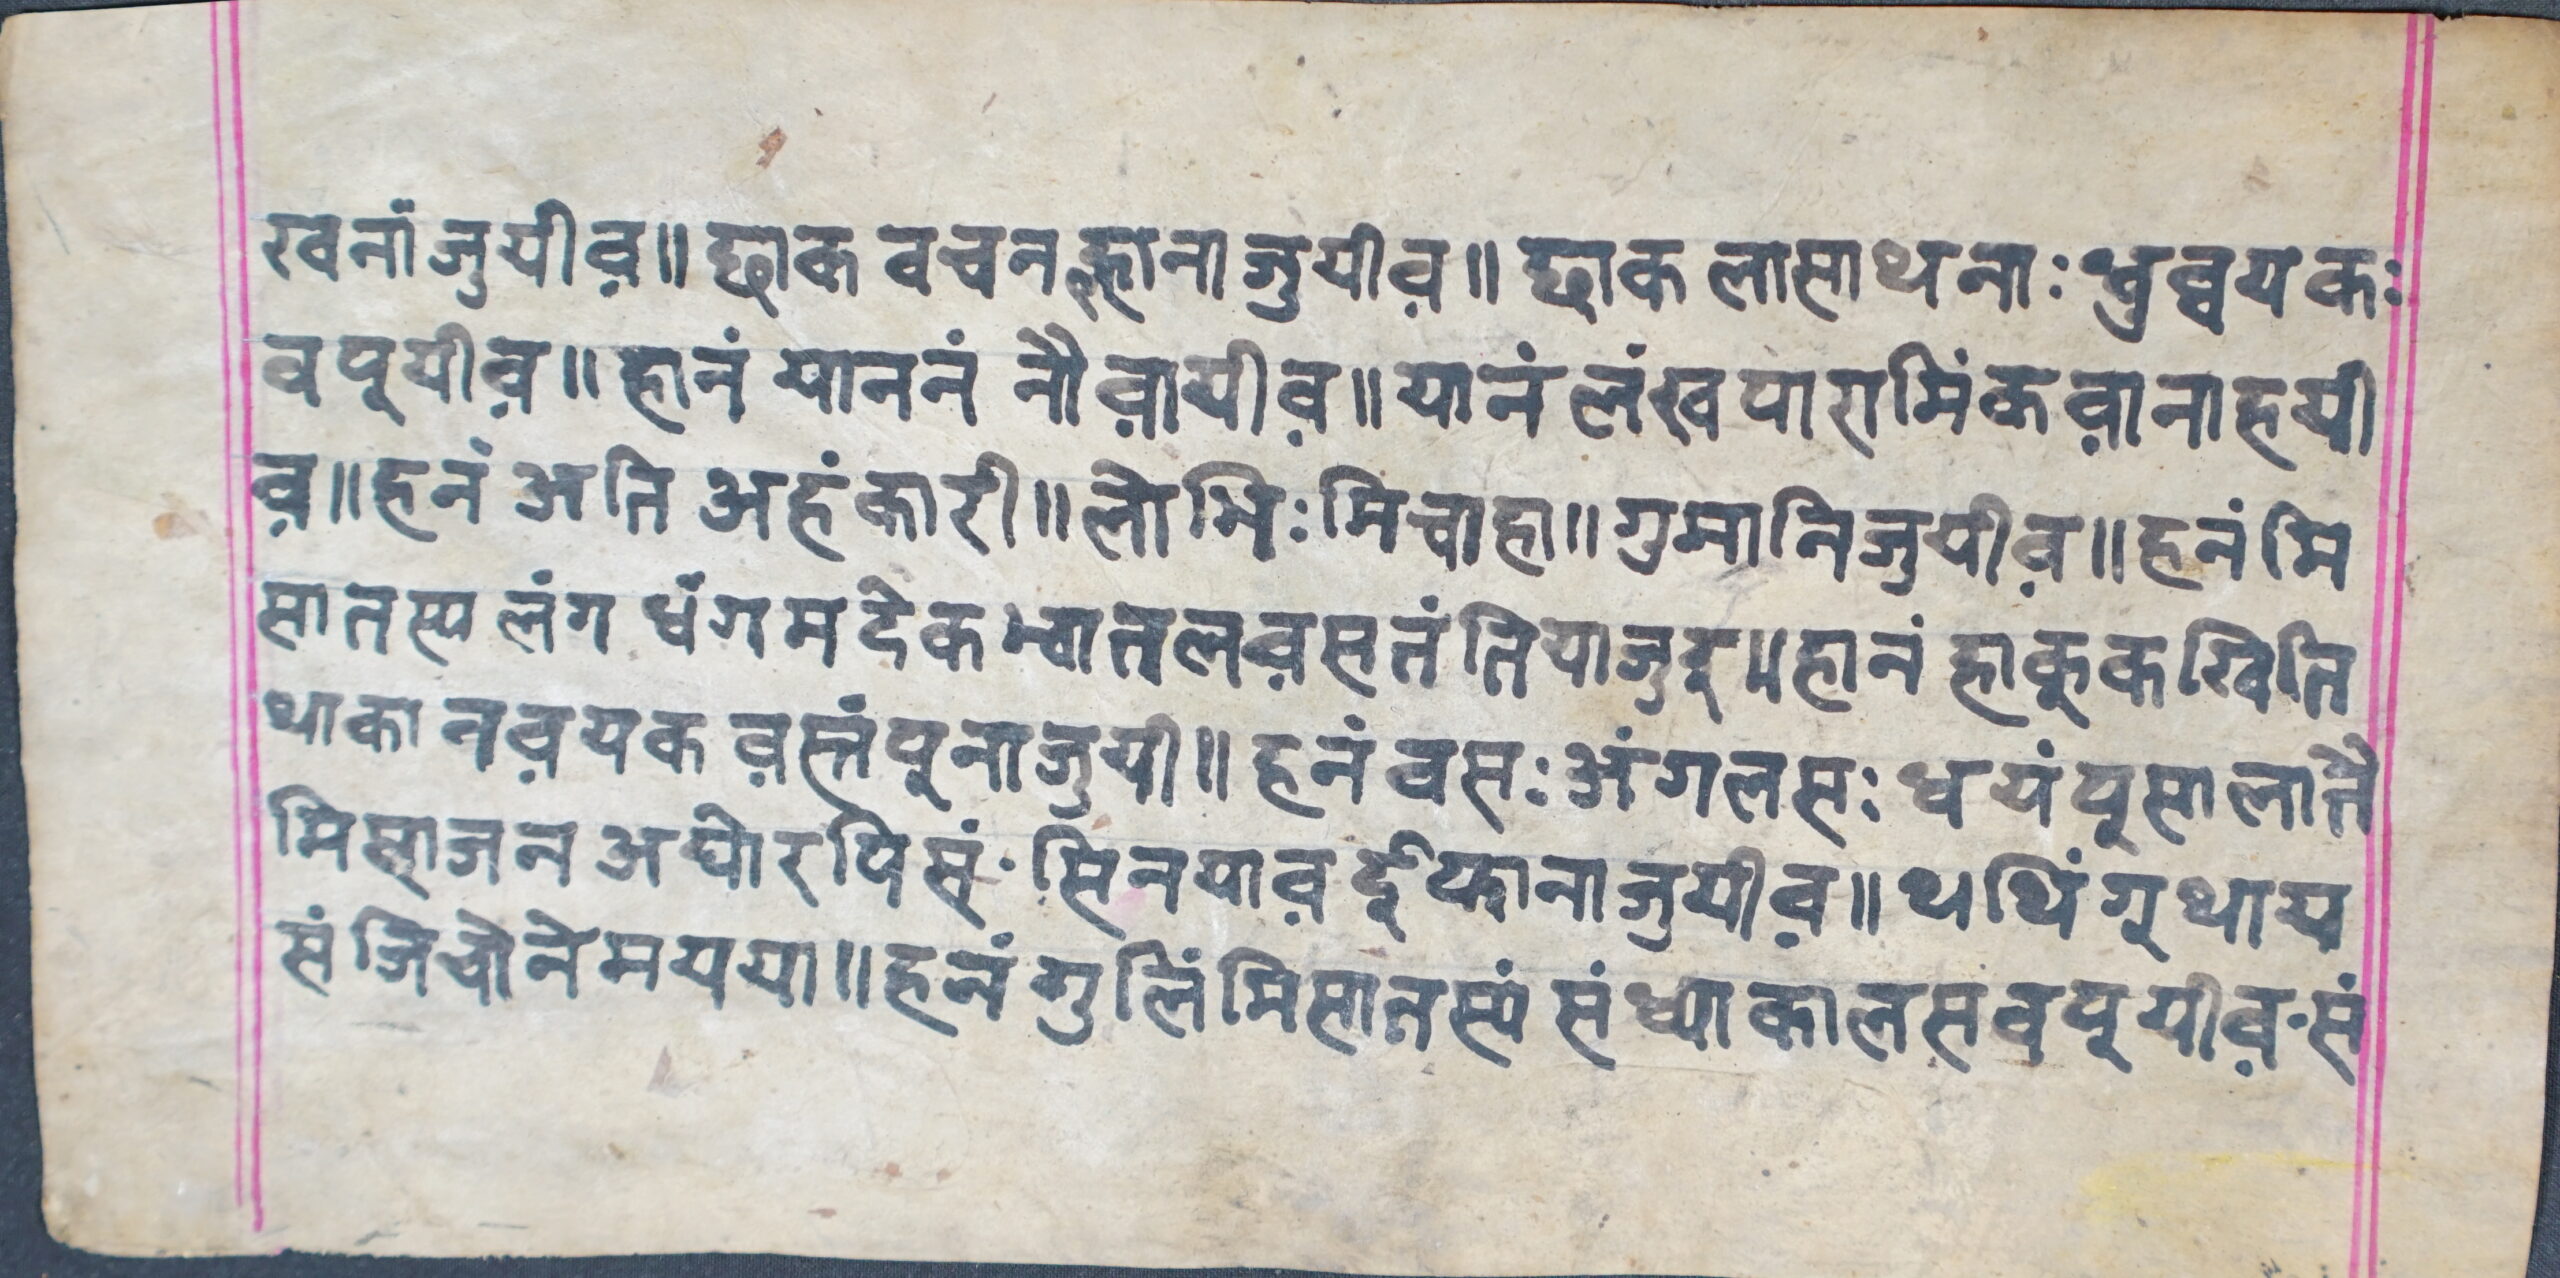 खनां जुयीव़॥ छाक वचन ह्लाना जुयीव़॥ छाक लासाथनाः भुव्वयकः
वपूयीव़॥ हानं याननं नौव़ायीव़॥ यानं लंखपारामिंकव़ानाहयी
व़॥ हनं अति अहंकारी॥ लोभिः मिचाहा॥ गुमानिजुयीव़॥ हनं मि
सातस्य लंग धंगमदेक भ्वातलव़सतं तियाजुइ॥ हानं हाकूक खिति
थाका नव़यक व़स्तंपूनाजुयी॥ हनं वसः अंगलसः ध्वयं पूसालातै
मिसाजन अघोरपिसं· सिनयाव़ दुःखानाजुयीव़॥ थथिंगू थाय
सं जिचोने मयया॥ हनं गुलिंमिसातस्यं संध्याकालस वपूयीव़·सं